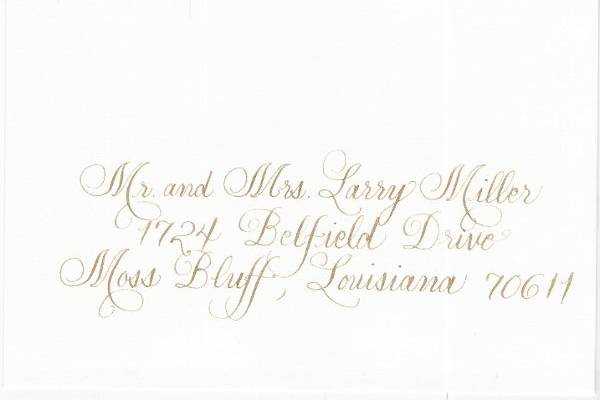 Mr. and Mrs. Larry Miller
1724 Belfield Drive
Moss Bluff, Louisiana 70611